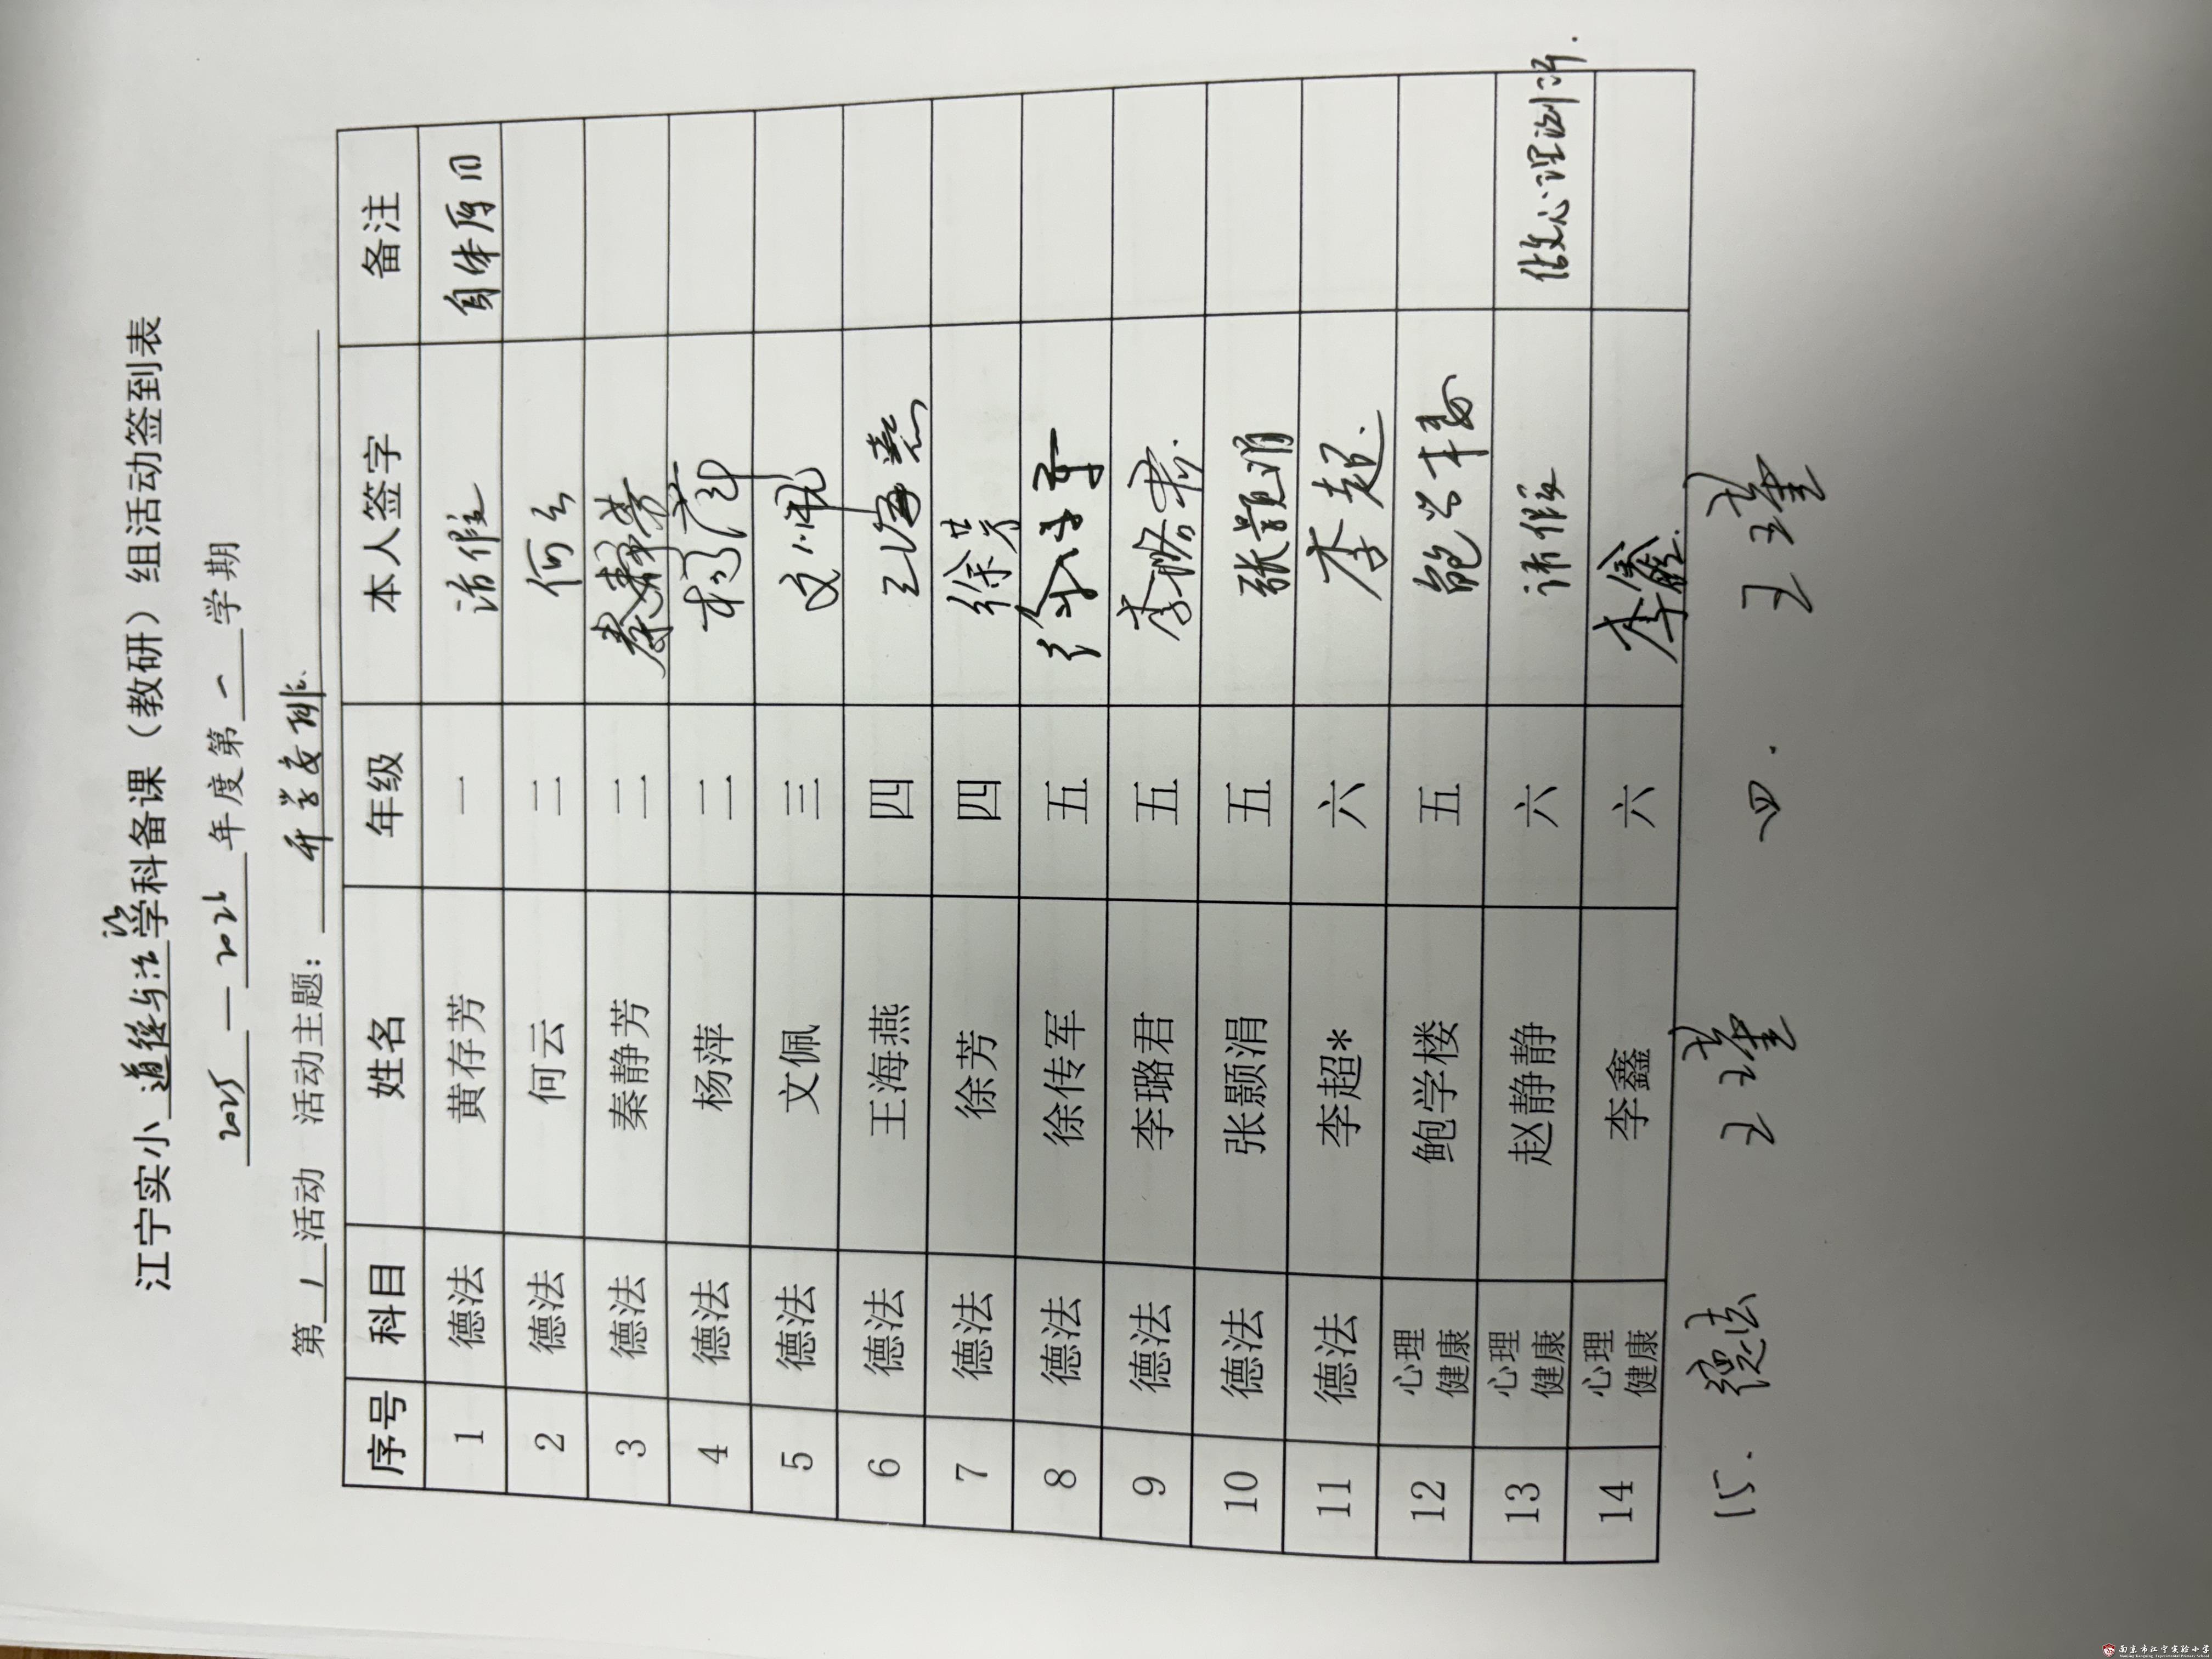 江宁实小 道德与法治 学科备课（教研）组活动签到表
2025 — 2026 年度第 一 学期
第 1 活动 活动主题： 开学安排
序号 科目 姓名 年级 本人签字 备注
1 德法 黄存芳 一 请假 身体原因
2 德法 何云 二 何云
3 德法 秦静芳 二 秦静芳
4 德法 杨萍 二 杨萍
5 德法 文佩 三 文佩
6 德法 王海燕 四 王海燕
7 德法 徐芳 四 徐芳
8 德法 徐传军 五 徐传军
9 德法 李璐君 五 李璐君
10 德法 张颢涓 五 张颢涓
11 德法 李超* 六 李超
12 心理健康 鲍学楼 五 鲍学楼
13 心理健康 赵静静 六 请假 做心理测评.
14 心理健康 李鑫 六 李鑫
15. 德法 王瑾 四. 王瑾
南京市江宁实验小学